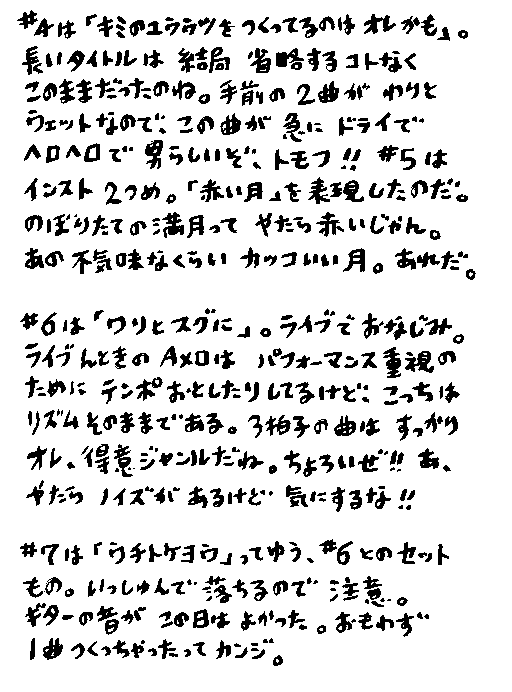 #4は「キミのユウウツをつくってるのはオレかも」。
長いタイトルは 結局 省略するコトなく
このままだったのね。手前の2曲が わりと
ウェットなので、この曲が 急に ドライで
ヘロヘロで 男らしいぞ、トモフ!! #5は
インスト 2つめ。「赤い月」を表現したのだ。
のぼりたての満月って やたら赤いじゃん。
あの 不気味なくらい カッコいい月。あれだ。
#6は「ワリとスグに」。ライブでおなじみ。
ライブんときのAメロは パフォーマンス重視の
ために テンポおとしたりしてるけど、こっちは
リズムそのままである。3拍子の曲は すっかり
オレ、得意ジャンルだね。ちょろいぜ!! あ、
やたら ノイズが あるけど 気にするな!!
#7は「ウチトケヨウ」ってゆう、#6とのセット
もの。いっしゅんで 落ちるので 注意。
ギターの音が この日は よかった。おもわず
1曲つくっちゃったって カンジ。